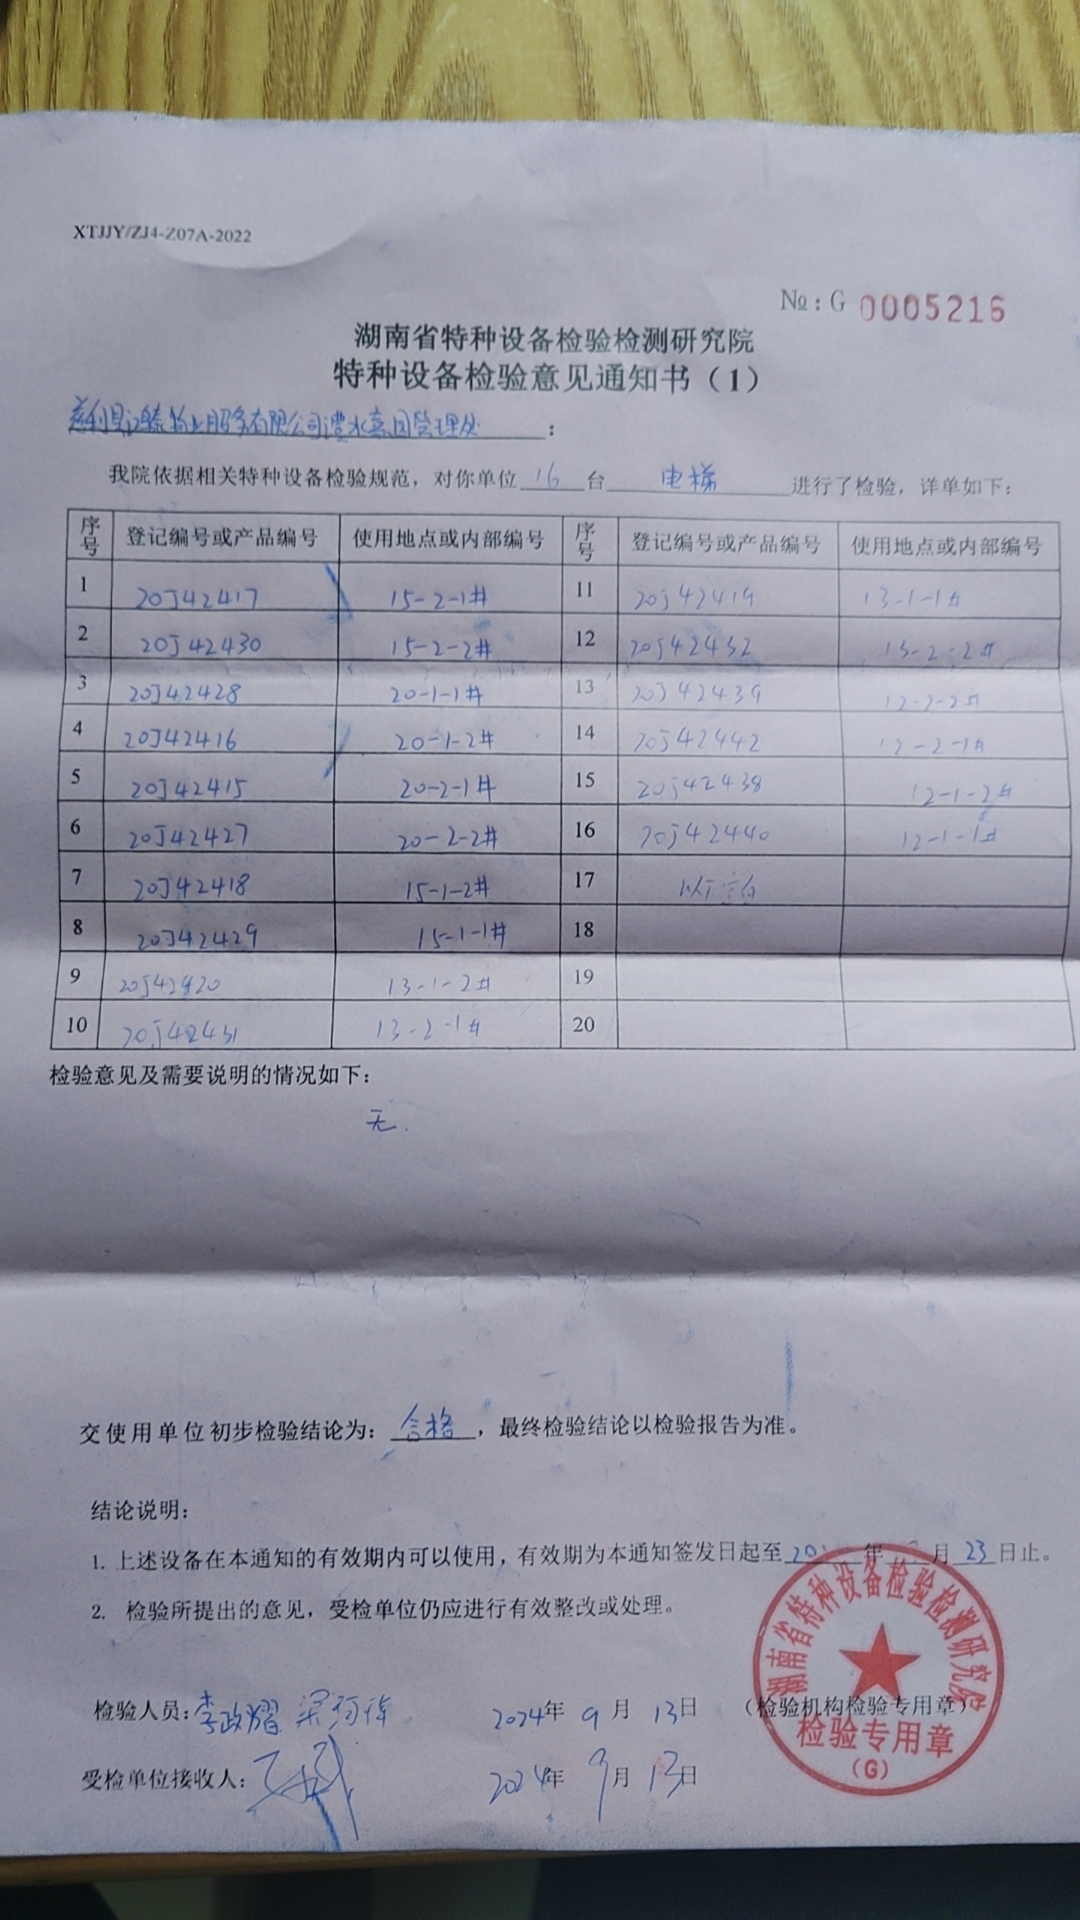 XTJJY/ZJ4-Z07A-2022
№:G 0005216
湖南省特种设备检验检测研究院
特种设备检验意见通知书（1）
慈利县 物业服务有限公司澧水 管理处：
我院依据相关特种设备检验规范，对你单位 16 台 电梯 进行了检验，详单如下：
序号 登记编号或产品编号 使用地点或内部编号 序号 登记编号或产品编号 使用地点或内部编号
1 20J42417 15-2-1# 11 20J42419 13-1-1#
2 20J42430 15-2-2# 12 20J42432 13-2-2#
3 20J42428 20-1-1# 13 20J42439 12-2-2#
4 20J42416 20-1-2# 14 20J42442 12-2-1#
5 20J42415 20-2-1# 15 20J42438 12-1-2#
6 20J42427 20-2-2# 16 20J42440 12-1-1#
7 20J42418 15-1-2# 17 以下空白
8 20J42429 15-1-1# 18
9 20J42420 13-1-2# 19
10 20J42431 13-2-1# 20
检验意见及需要说明的情况如下：
无.
交使用单位初步检验结论为：合格，最终检验结论以检验报告为准。
结论说明：
1. 上述设备在本通知的有效期内可以使用，有效期为本通知签发日起至 20 年 月 23 日止。
2. 检验所提出的意见，受检单位仍应进行有效整改或处理。
检验人员：李政耀 梁 2024年 9 月 13日 （检验机构检验专用章）
受检单位接收人： 2024年 9月 13日
湖南省特种设备检验检测研究院
检验专用章
(G)